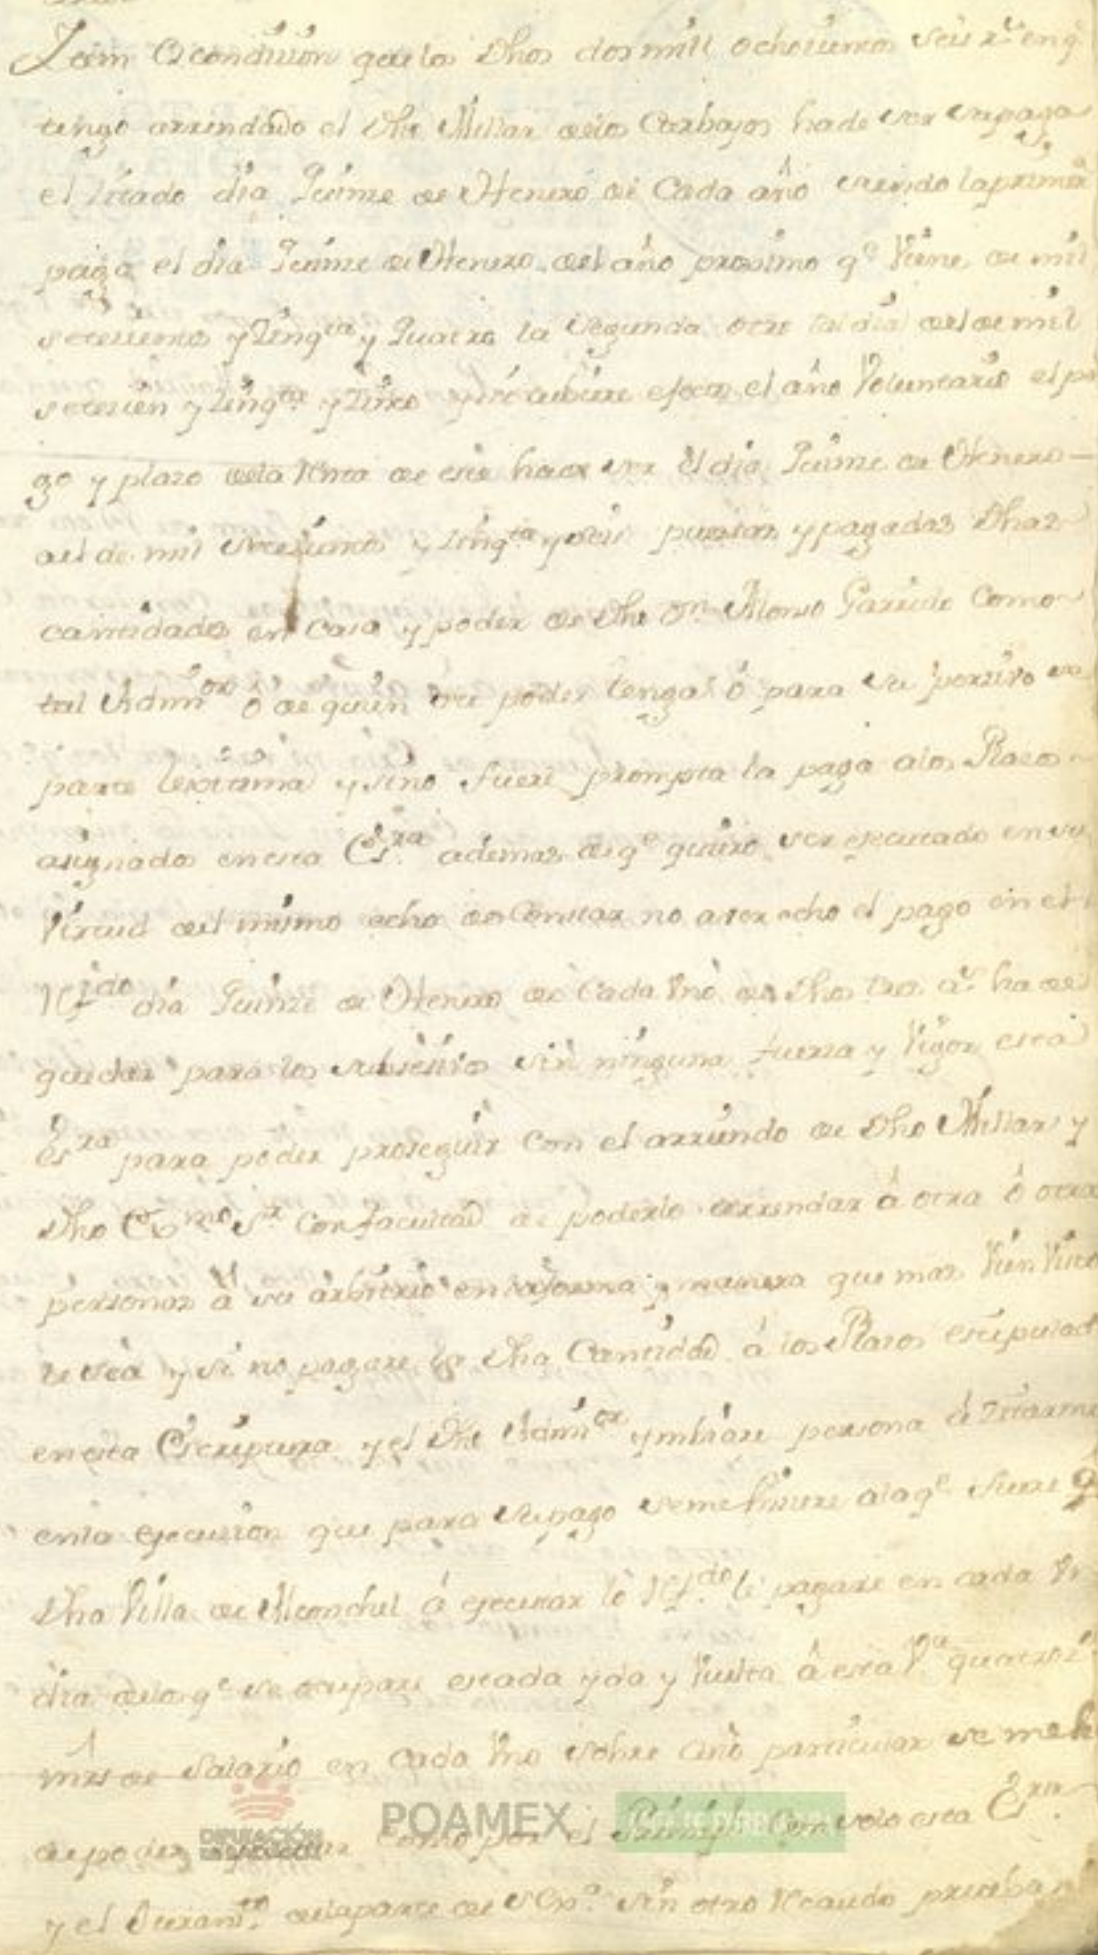 Item es condizion que los dhos dos mill ochozientos seis rs. en q.
tengo arrendado el dho Millar de los Carbajos ha de ser su paga
el zitado dia Quinze de Henero de Cada año siendo la primera
paga el dia Quinze de Henero del año proximo q.e Viene de mil
setezientos y Zinq.ta y Quatro la segunda otro tal dia del de mil
setezien y Zinq.ta y Zinco y si tubiere efecto el año Voluntario el pa
go y plazo de la Renta de este ha de ser el dia Quinze de Henero
del de mil setezientos y Zinq.ta y seis puestas y pagadas dhas
cantidades en Casa y poder de dho D.n Alonso Garrido Como
tal Admin.or ó de quien su poder tenga ó para su perzivo se
parte lexitima y si no fuere prompta la paga a los Plazos
asignados en esta Es.ra ademas de q.e quiero ser executado en su
Virtud del mismo echo de Constar no aver echo el pago en el
Rf.do dia Quinze de Henero de Cada Uno de dhos tres a.s ha de
quedar para los subsesivos sin ninguna fuerza y Vigor esta
Es.ra para poder proseguir Con el arriendo de dho Millar y
dho Ex.mo S.r Con facultad de poderlo arrendar á otra ó otras
personas á su arbitrio en la forma y manera que mas Vien Visto
le sea y si no pagare la dha Cantidad á los Plazos estipulad
en esta Escriptura y el dho Admin.or ymbiare persona á Zitarme
en la execuzion que para su pago se me hiziere a la q.e fuere
Dha Villa de Alconchel á executar lo Rf.do le pagare en cada Un
dia de los q.e se ocupare estada yda y buelta á esta V.a quatroz.
mrs de Salario en Cada Uno sobre Cuio particular se me h
de poder como por el Prinzipal Con solo esta Es.ra
y el Juram.to de la parte de S Ex.a sin otro Recaudo prueba n
DIPUTACIÓN
DE BADAJOZ
POAMEX